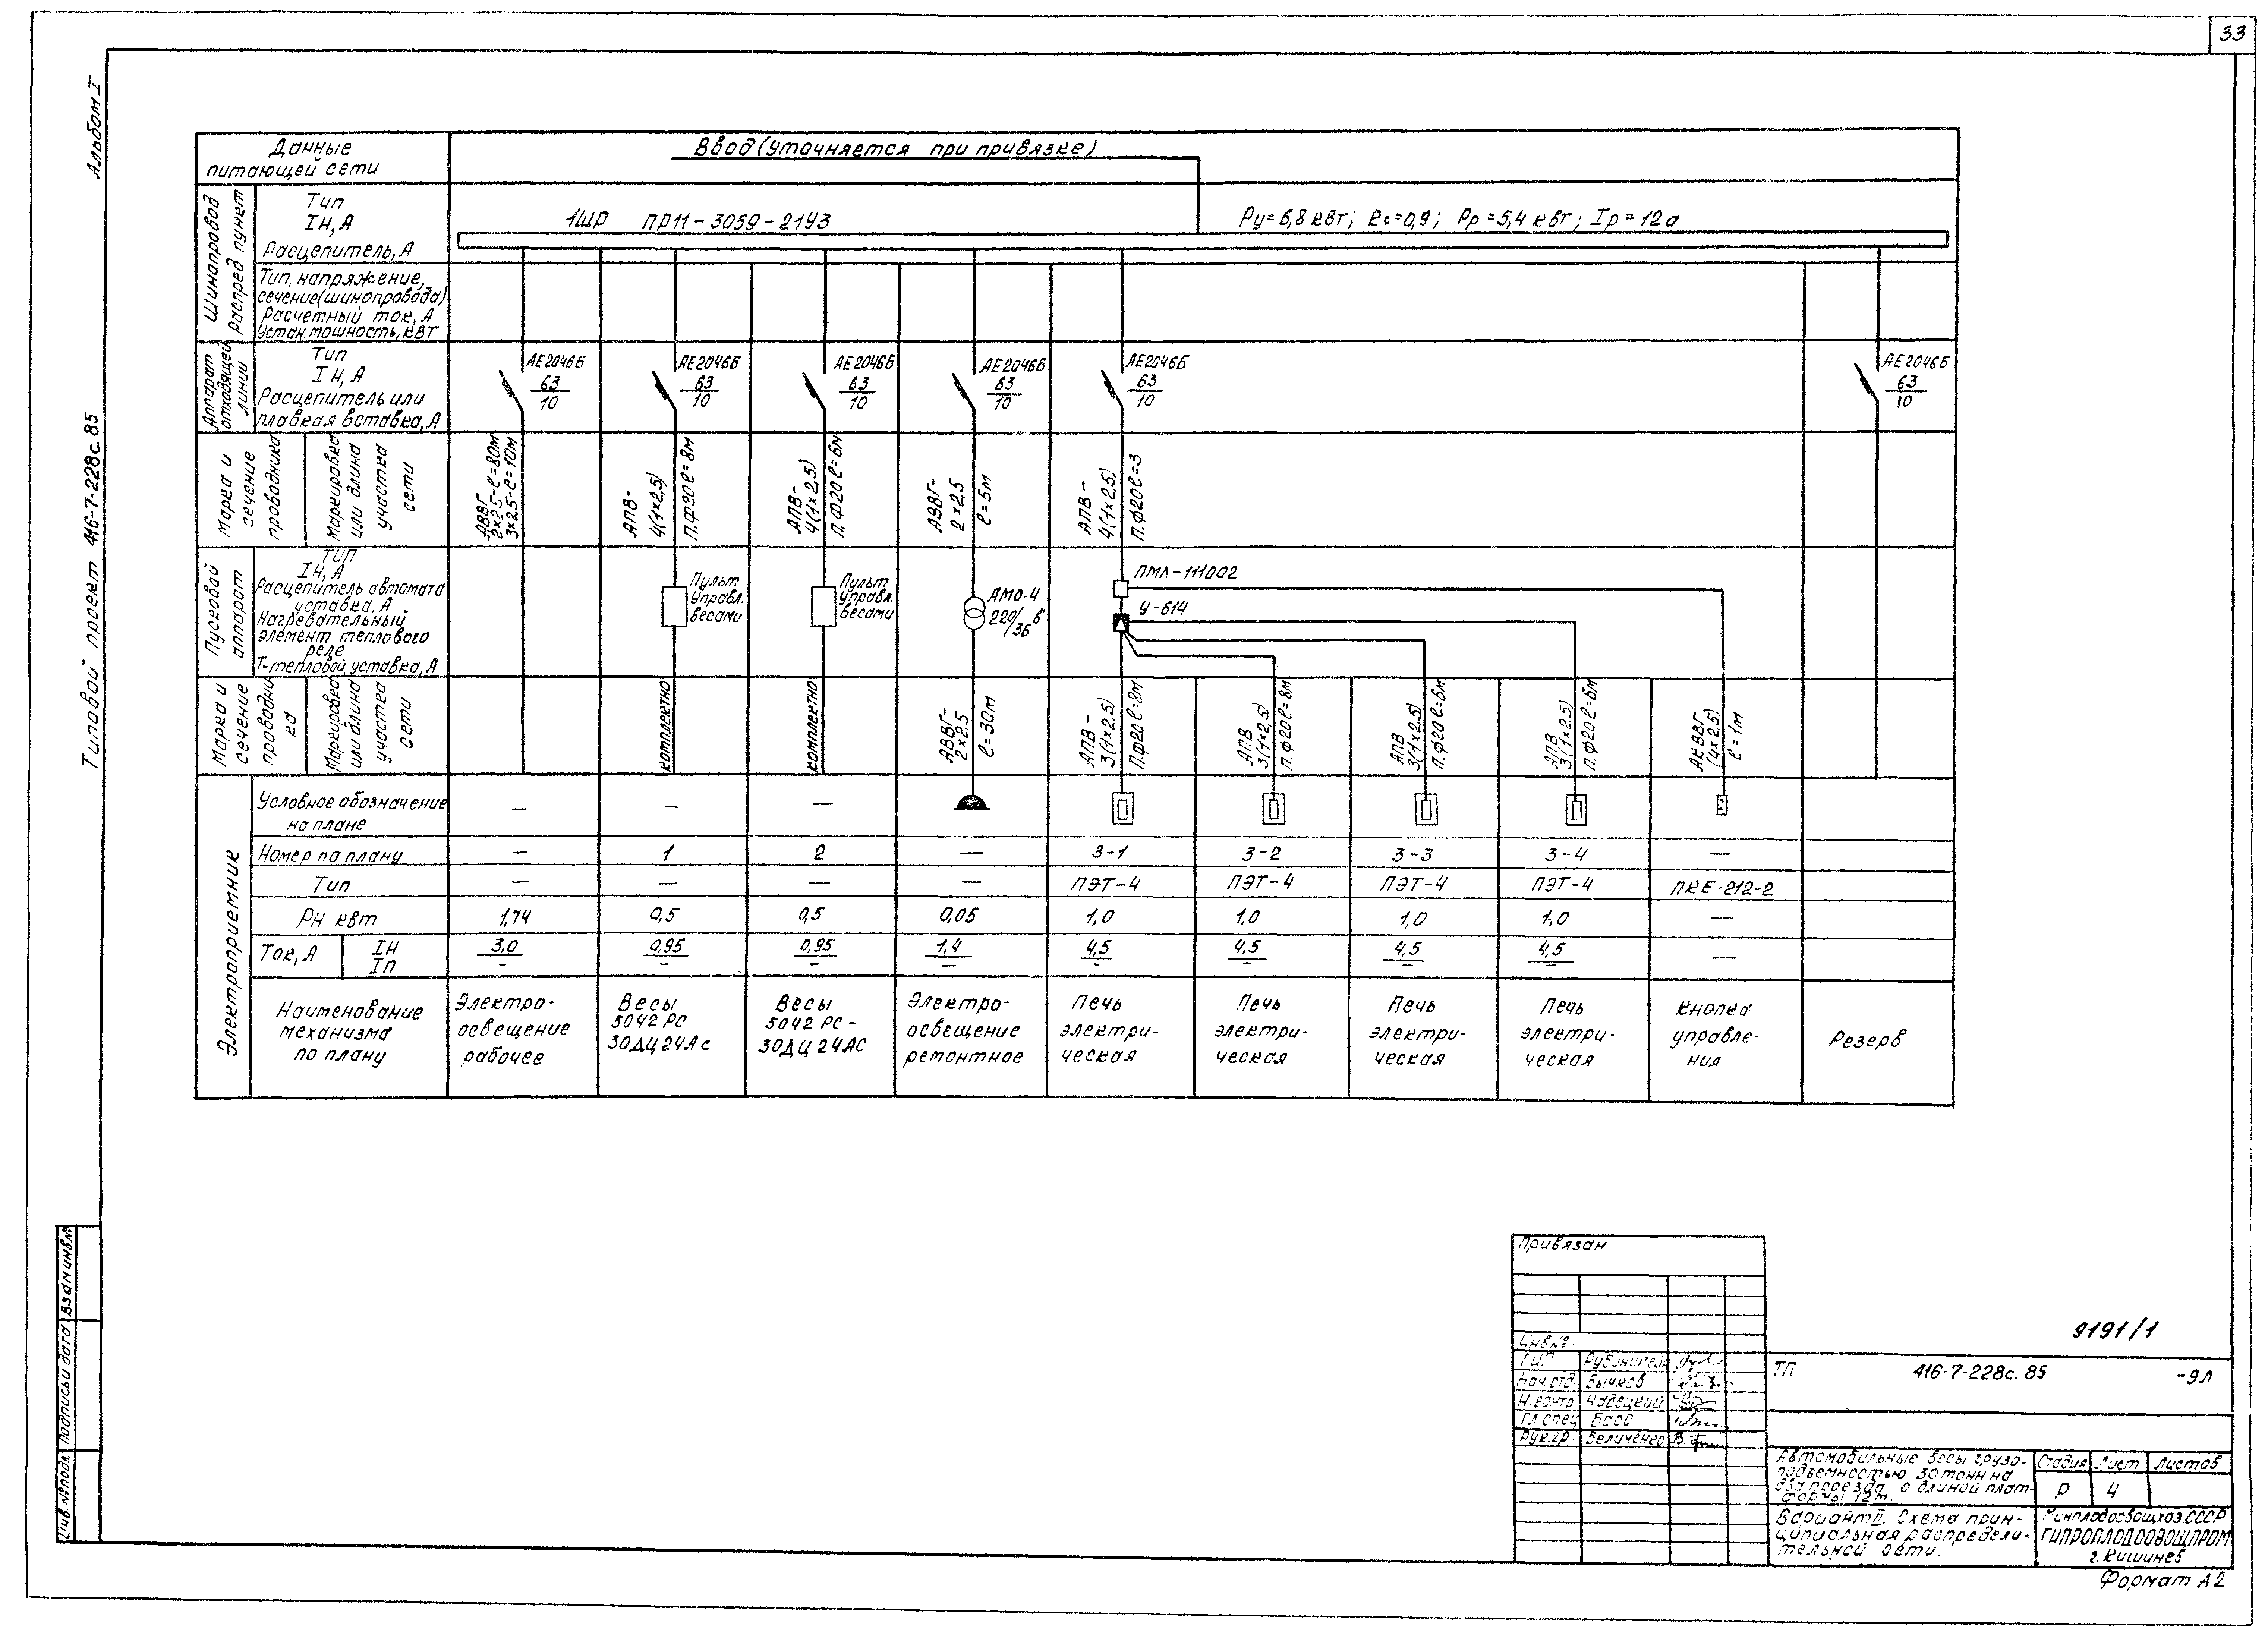 33
Альбом I
Типовой проект 416-7-228с.85
Данные
питающей сети
Ввод (уточняется при привязке)
Шинопровод
Распред пункт
Тип
Iн, А
Расцепитель, А
1ШР ПР11-3059-21У3
Ру=6,8 квт; Кс=0,9; Рр=5,4 квт; Iр=12а
Тип, напряжение,
сечение (шинопровода)
Расчетный ток, А
Устан. мощность, квт
Аппарат
отходящей
линии
Тип
Iн, А
Расцепитель или
плавкая вставка, А
АЕ2046Б
63
10
АЕ2046Б
63
10
АЕ2046Б
63
10
АЕ2046Б
63
10
АЕ2046Б
63
10
АЕ2046Б
63
10
Марка и
сечение
проводника
Маркировка
или длина
участка
сети
АВВГ
2×2,5-ℓ=80м
3×2,5-ℓ=10м
АПВ-
4(1×2,5)
П.ф20 ℓ=8м
АПВ-
4(1×2,5)
П.ф20 ℓ=6м
АВВГ-
2×2,5
ℓ=5м
АПВ-
4(1×2,5)
П.ф20 ℓ=3
Пусковой
аппарат
Тип
Iн, А
Расцепитель автомата
уставка, А
Нагревательный
элемент теплового
реле
Т-тепловой, уставка, А
Пульт
управл.
весами
Пульт
управл.
весами
АМО-4
220/36 в
ПМЛ-111002
У-614
Марка и
сечение
проводни
ка
Маркировка
или длина
участка
сети
комплектно
комплектно
АВВГ-
2×2,5
ℓ=30м
АПВ-
3(1×2,5)
П.ф20 ℓ=8м
АПВ
3(1×2,5)
П.ф20 ℓ=8м
АПВ
3(1×2,5)
П.ф20 ℓ=6м
АПВ
3(1×2,5)
П.ф20 ℓ=6м
АКВВГ
(4×2,5)
ℓ=1м
Электроприемник
Условное обозначение
на плане
— — —
Номер по плану — 1 2 — 3-1 3-2 3-3 3-4 —
Тип — — — — ПЭТ-4 ПЭТ-4 ПЭТ-4 ПЭТ-4 ПКЕ-212-2
Рн квт 1,74 0,5 0,5 0,05 1,0 1,0 1,0 1,0 —
Ток, А Iн 3,0 0,95 0,95 1,4 4,5 4,5 4,5 4,5 —
Iп — — — — — — — —
Наименование
механизма
по плану
Электро-
освещение
рабочее
Весы
5042 РС
30ДЦ24Ас
Весы
5042 РС-
30ДЦ24АС
Электро-
освещение
ремонтное
Печь
электри-
ческая
Печь
электри-
ческая
Печь
электри-
ческая
Печь
электри-
ческая
Кнопка
управле-
ния
Резерв
Инв.№подл. Подпись и дата Взам инв.№
Привязан
Инв.№
ГИП Рубинштейн
Нач.отд. Бычков
Н.контр. Надецкий
Гл.спец Басс
Рук.гр. Величенко
9191/1
ТП 416-7-228с.85 -ЭЛ
Автомобильные весы грузо-
подъемностью 30 тонн на
два проезда с длиной плат-
формы 12м.
Стадия Лист Листов
Р 4
Вариант II. Схема прин-
ципиальная распредели-
тельной сети.
Минплодоовощхоз СССР
ГИПРОПЛОДООВОЩПРОМ
г. Кишинев
Формат А2